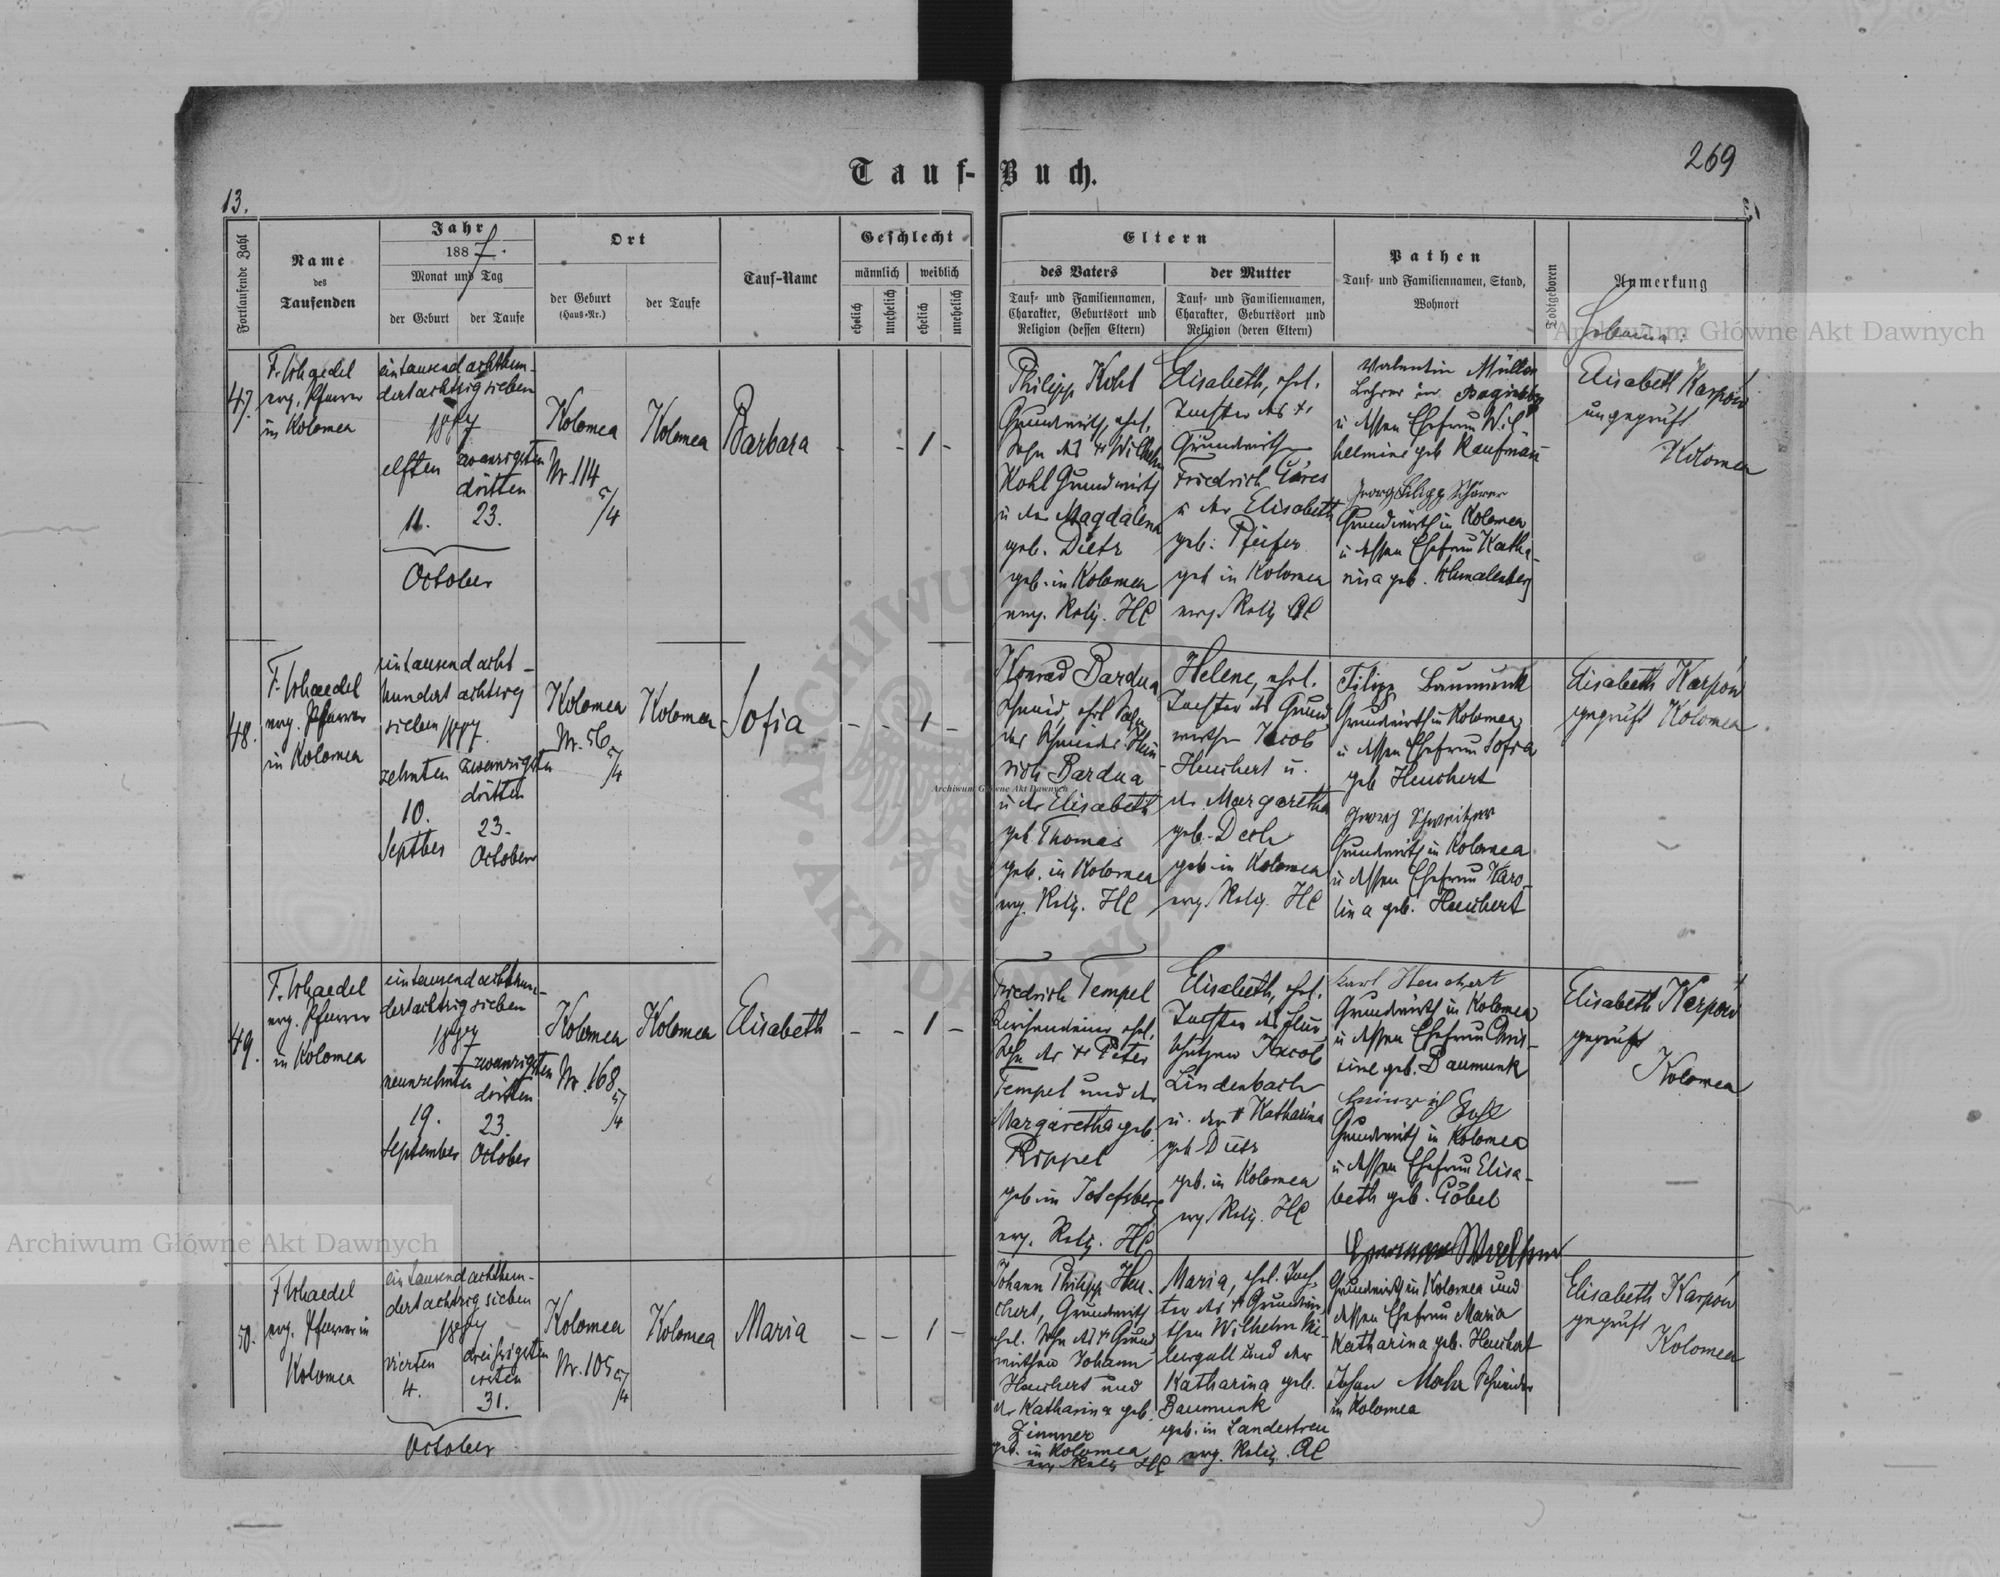 Tauf-Buch.
13.
269
Fortlaufende Zahl
Name
des
Taufenden
Jahr
1887.
Monat und Tag
der Geburt
der Taufe
Ort
der Geburt
(Haus-Nr.)
der Taufe
Tauf-Name
Geschlecht
männlich
weiblich
ehelich
unehelich
ehelich
unehelich
Eltern
des Vaters
Tauf- und Familiennamen,
Charakter, Geburtsort und
Religion (dessen Eltern)
der Mutter
Tauf- und Familiennamen,
Charakter, Geburtsort und
Religion (deren Eltern)
Pathen
Tauf- und Familiennamen, Stand,
Wohnort
Todtgeboren
Anmerkung
47.
evg. Pfarrer
in Kolomea
eintausend achthun-
dertachtzigsieben
1887
elften
11.
zwanzigsten
dritten
23.
October
Kolomea
Nr. 114
5/4
Kolomea
Barbara
- - 1 -
Philipp Kohl
Grundwirth, ehel.
Sohn des + Wilhelm
Kohl Grundwirth
u der Magdalena
geb. Dietz
geb. in Kolomea
evg. Relig. HC
Elisabeth, ehel.
Tochter des +
Grundwirth
Friedrich Göres
u der Elisabeth
geb. Pfeifer
geb in Kolomea
evg. Relig AC
Valentin Müller
Lehrer in Baginsberg
u dessen Ehefrau Wil
helmine geb Kaufman
Georg Filipp Schärer
Grundwirth in Kolomea
u dessen Ehefrau Katha-
rina geb. Schmalenberg
Hebamme:
Elisabeth Karpów
ungeprüft
Kolomea
48.
evg. Pfarrer
in Kolomea
eintausend acht-
hundert achtzig
sieben 1887.
zehnten
10.
Septber
zwanzigsten
dritten
23.
October
Kolomea
Nr. 56
5/4
Kolomea
Sofia
- - 1 -
Konrad Bardua
Schmid, ehel Sohn
des Schmiedes Hein
rich Bardua
u der Elisabeth
geb Thomas
geb. in Kolomea
evg. Relig. HC
Helene, ehel.
Tochter des Grund
wirthen Jacob
Heuchert u.
der Margaretha
geb. Desch
geb in Kolomea
evg. Relig. HC
Filipp Baumunk
Grundwirth in Kolomea
u dessen Ehefrau Sofia
geb Heuchert
Georg Schweitzer
Grundwirth in Kolomea
u dessen Ehefrau Karo-
lina geb. Heuchert
Elisabeth Karpów
geprüft Kolomea
49.
evg. Pfarrer
in Kolomea
eintausend achthun-
dertachtzig sieben
1887
neunzehnten
19.
September
zwanzigsten
dritten
23.
October
Kolomea
Nr. 168
5/4
Kolomea
Elisabeth
- - 1 -
Friedrich Tempel
Kirchendiener, ehel.
Sohn des + Peter
Tempel und der
Margaretha geb.
Rippel
geb in Josefsberg
evg. Relig. HC
Elisabeth, ehel.
Tochter des Flur
schützen Jacob
Lindenbach
u. der + Katharina
geb Dietz
geb. in Kolomea
evg. Relig. HC
Karl Heuchert
Grundwirth in Kolomea
u dessen Ehefrau Chris-
tine geb. Baumunk
Heinrich
Grundwirth in Kolomea
u dessen Ehefrau Elisa-
beth geb. Göbel
Elisabeth Karpów
geprüft
Kolomea
50.
evg. Pfarrer in
Kolomea
eintausend achthun-
dertachtzig sieben
1887
vierten
4.
dreißigsten
ersten
31.
October
Kolomea
Nr. 105
5/4
Kolomea
Maria
- - 1 -
Johann Philipp Heu-
chert, Grundwirth
ehel. Sohn des + Grund
wirthen Johann
Heuchert und
der Katharina geb.
Zimmer
geb. in Kolomea
evg Relig HC
Maria, ehel. Toch-
ter des + Grundwir-
then Wilhelm
und der
Katharina geb.
Baumunk
geb. in Landestreu
evg. Relig. AC
Grundwirth in Kolomea und
dessen Ehefrau Maria
Katharina geb. Heuchert
Johann Mohr Schneider
in Kolomea
Elisabeth Karpów
geprüft
Kolomea
Archiwum Główne Akt Dawnych
Archiwum Główne Akt Dawnych
Archiwum Główne Akt Dawnych